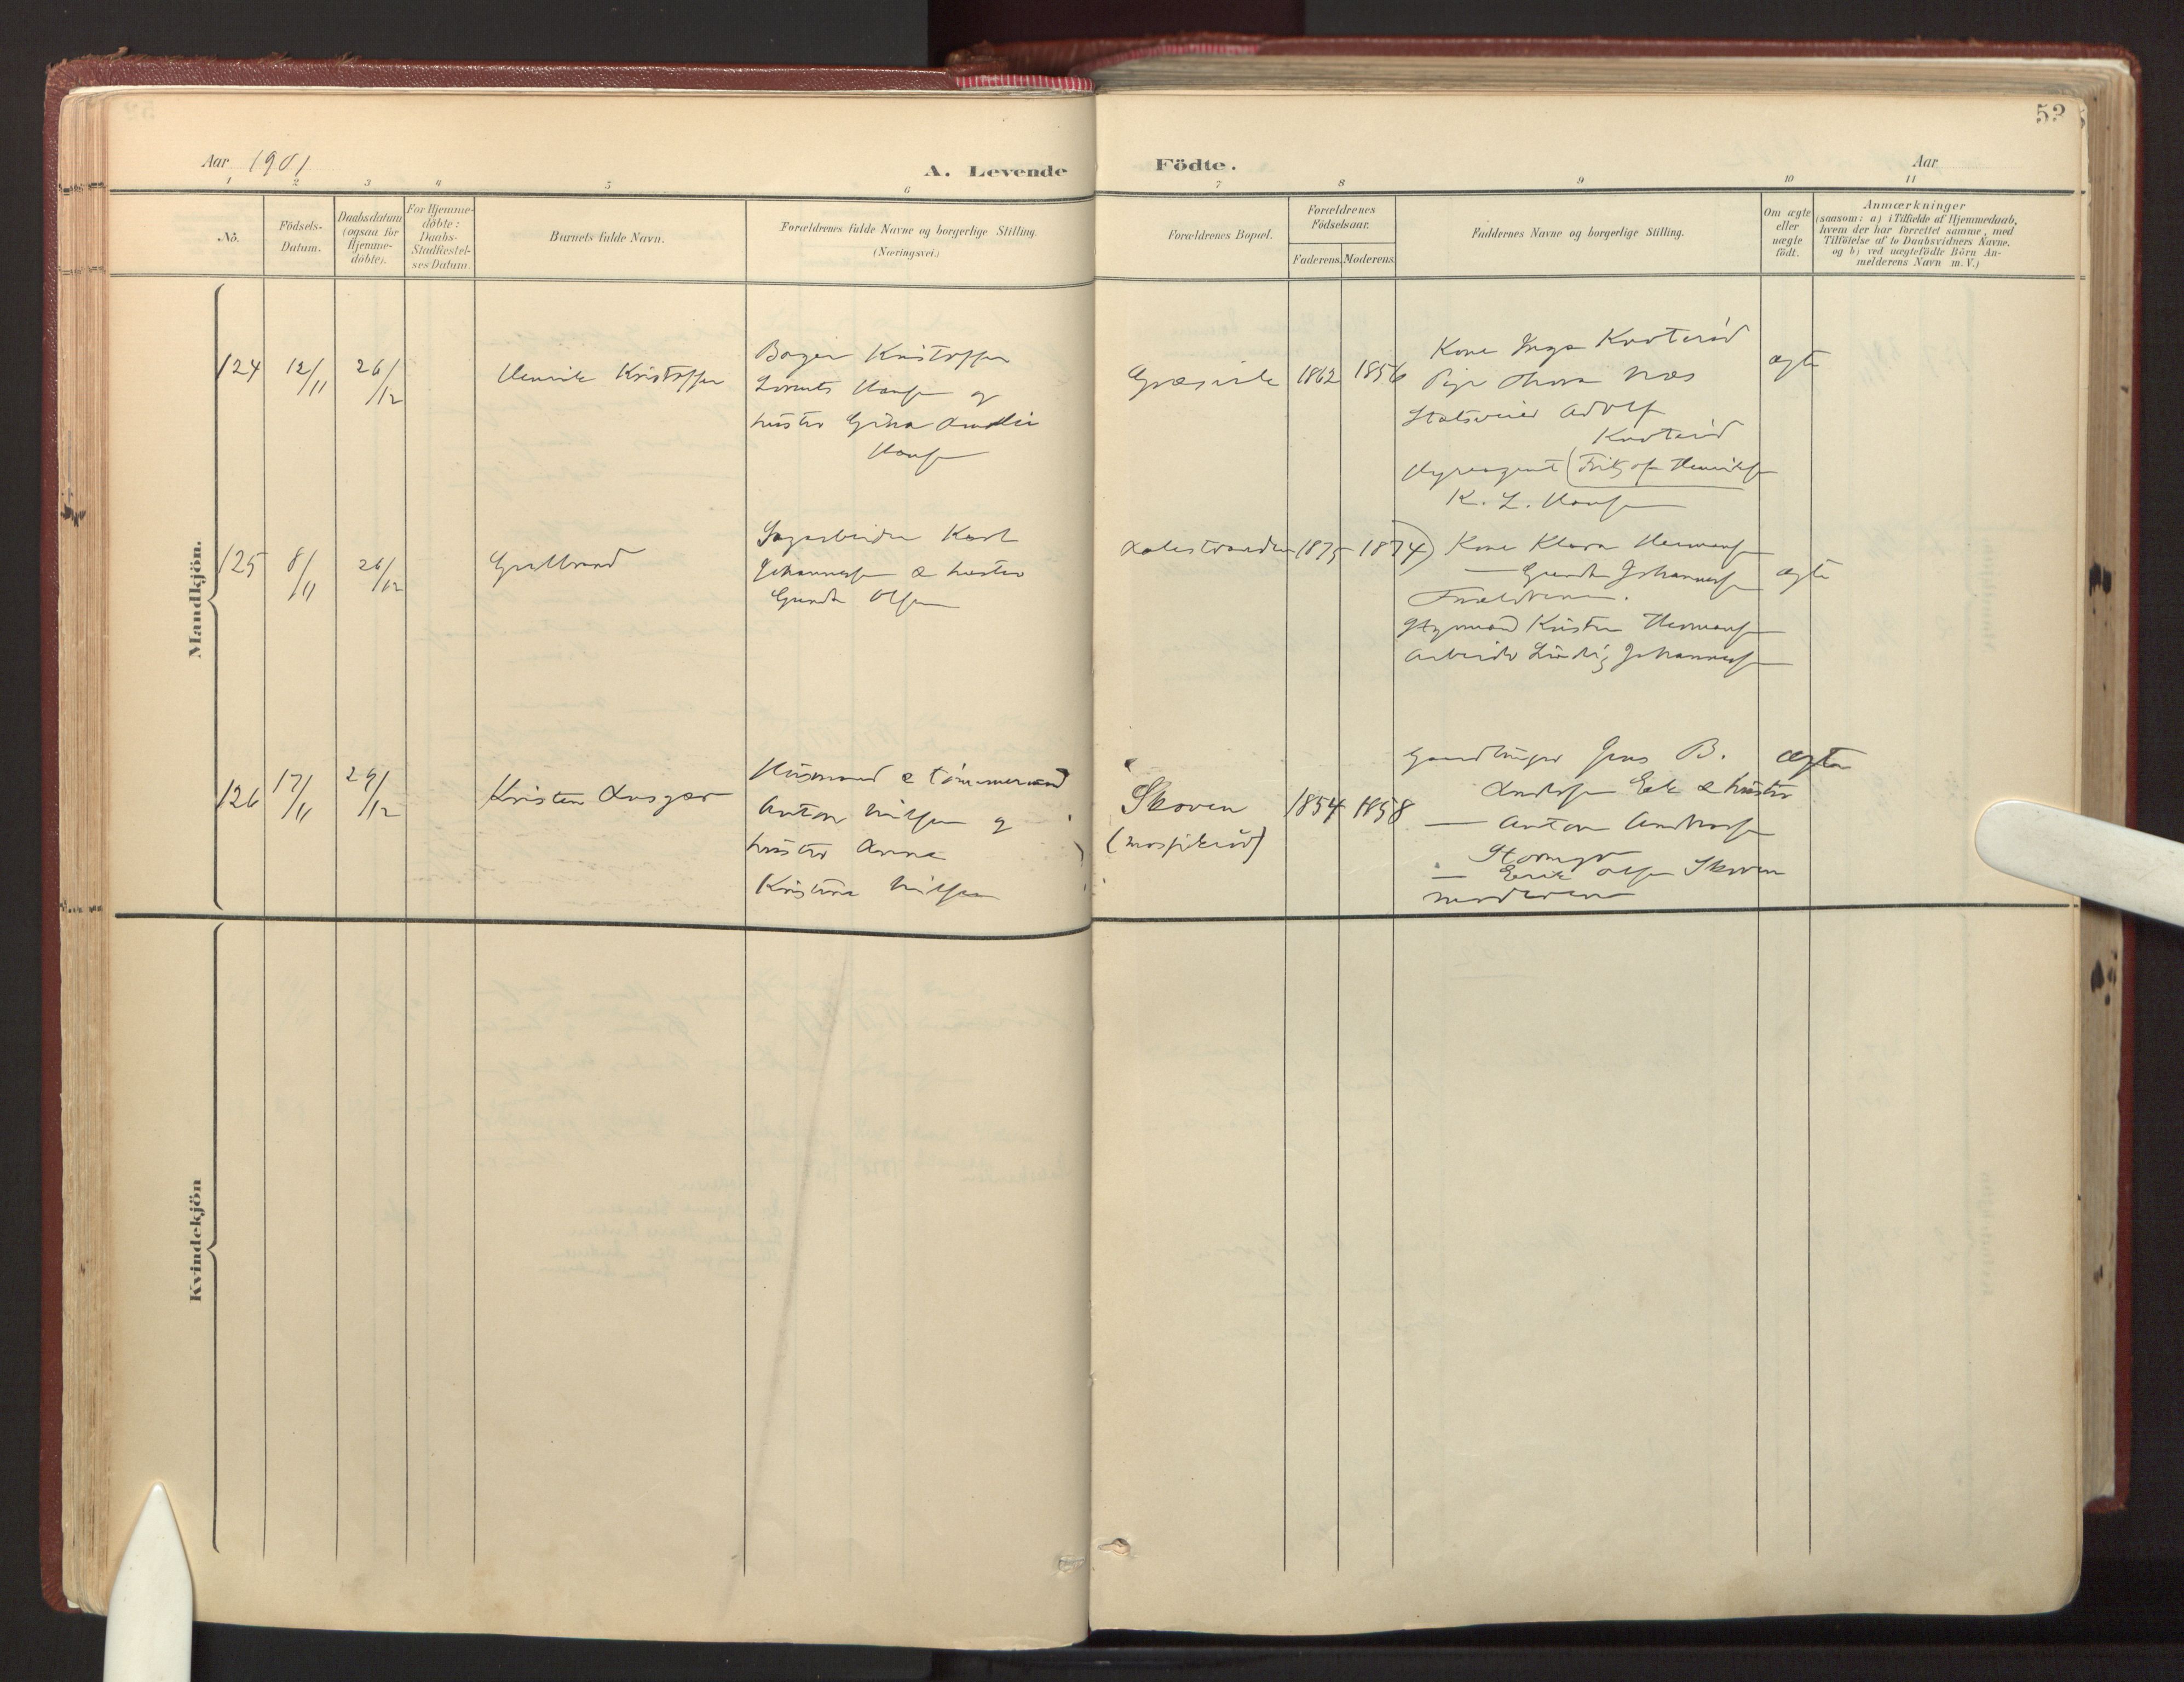 53
Aar 1901
A. Levende Födte.
Aar
1 2 3 4 5 6 7 8 9 10 11
No.
Födsels-Datum.
Daabsdatum (ogsaa for Hjemme-döbte).
For Hjemme-döbte: Daabs-Stadfæstel-ses Datum.
Barnets fulde Navn.
Forældrenes fulde Navne og borgerlige Stilling. (Næringsvei.)
Forældrenes Bopæl.
Forældrenes Födselsaar.
Faderens. Moderens.
Faddernes Navne og borgerlige Stilling.
Om ægte eller uægte födt.
Anmærkninger
(saasom: a) i Tilfælde af Hjemmedaab,
hvem der har forrettet samme, med
Tilföielse af to Daabsvidners Navne.
og b) ved uægtefödte Börn An-
melderens Navn m. V.)
Mandkjön.
124 12/11 26/12 Henrik Kristoffer
Bager Kristoffer
Lorents Hansen og
hustru Gina Amalie
Hansen
1862 1856
Kone Inga Knoteröd
Pige Thora Næs
Adolf
Knoteröd
Hyreagent (Fritjof Henriksen
K. L. Hansen
ægte
125 8/11 26/12 Gulbrand
Sagarbeider Karl
Johannesen & hustru
Gunda Olsen
1875 1874)
Kone Klara Hermansen
— Gunda Johannesen
Forældrene.
Styrmand Kristen Hermansen
Arbeider Ludvig Johannesen
ægte
126 17/11 29/12 Kristen Ansgar
Husmand & tömmermand
Anton Nilsen og
hustru Anna
Kristine Nilsen
Skoven
1854 1858
Gaardbruger Jens B.
Andersen Eek & hustru
— Anton Andersen
Stormyr
— Erik Olsen Skoven
moderen
ægte
Kvindekjön